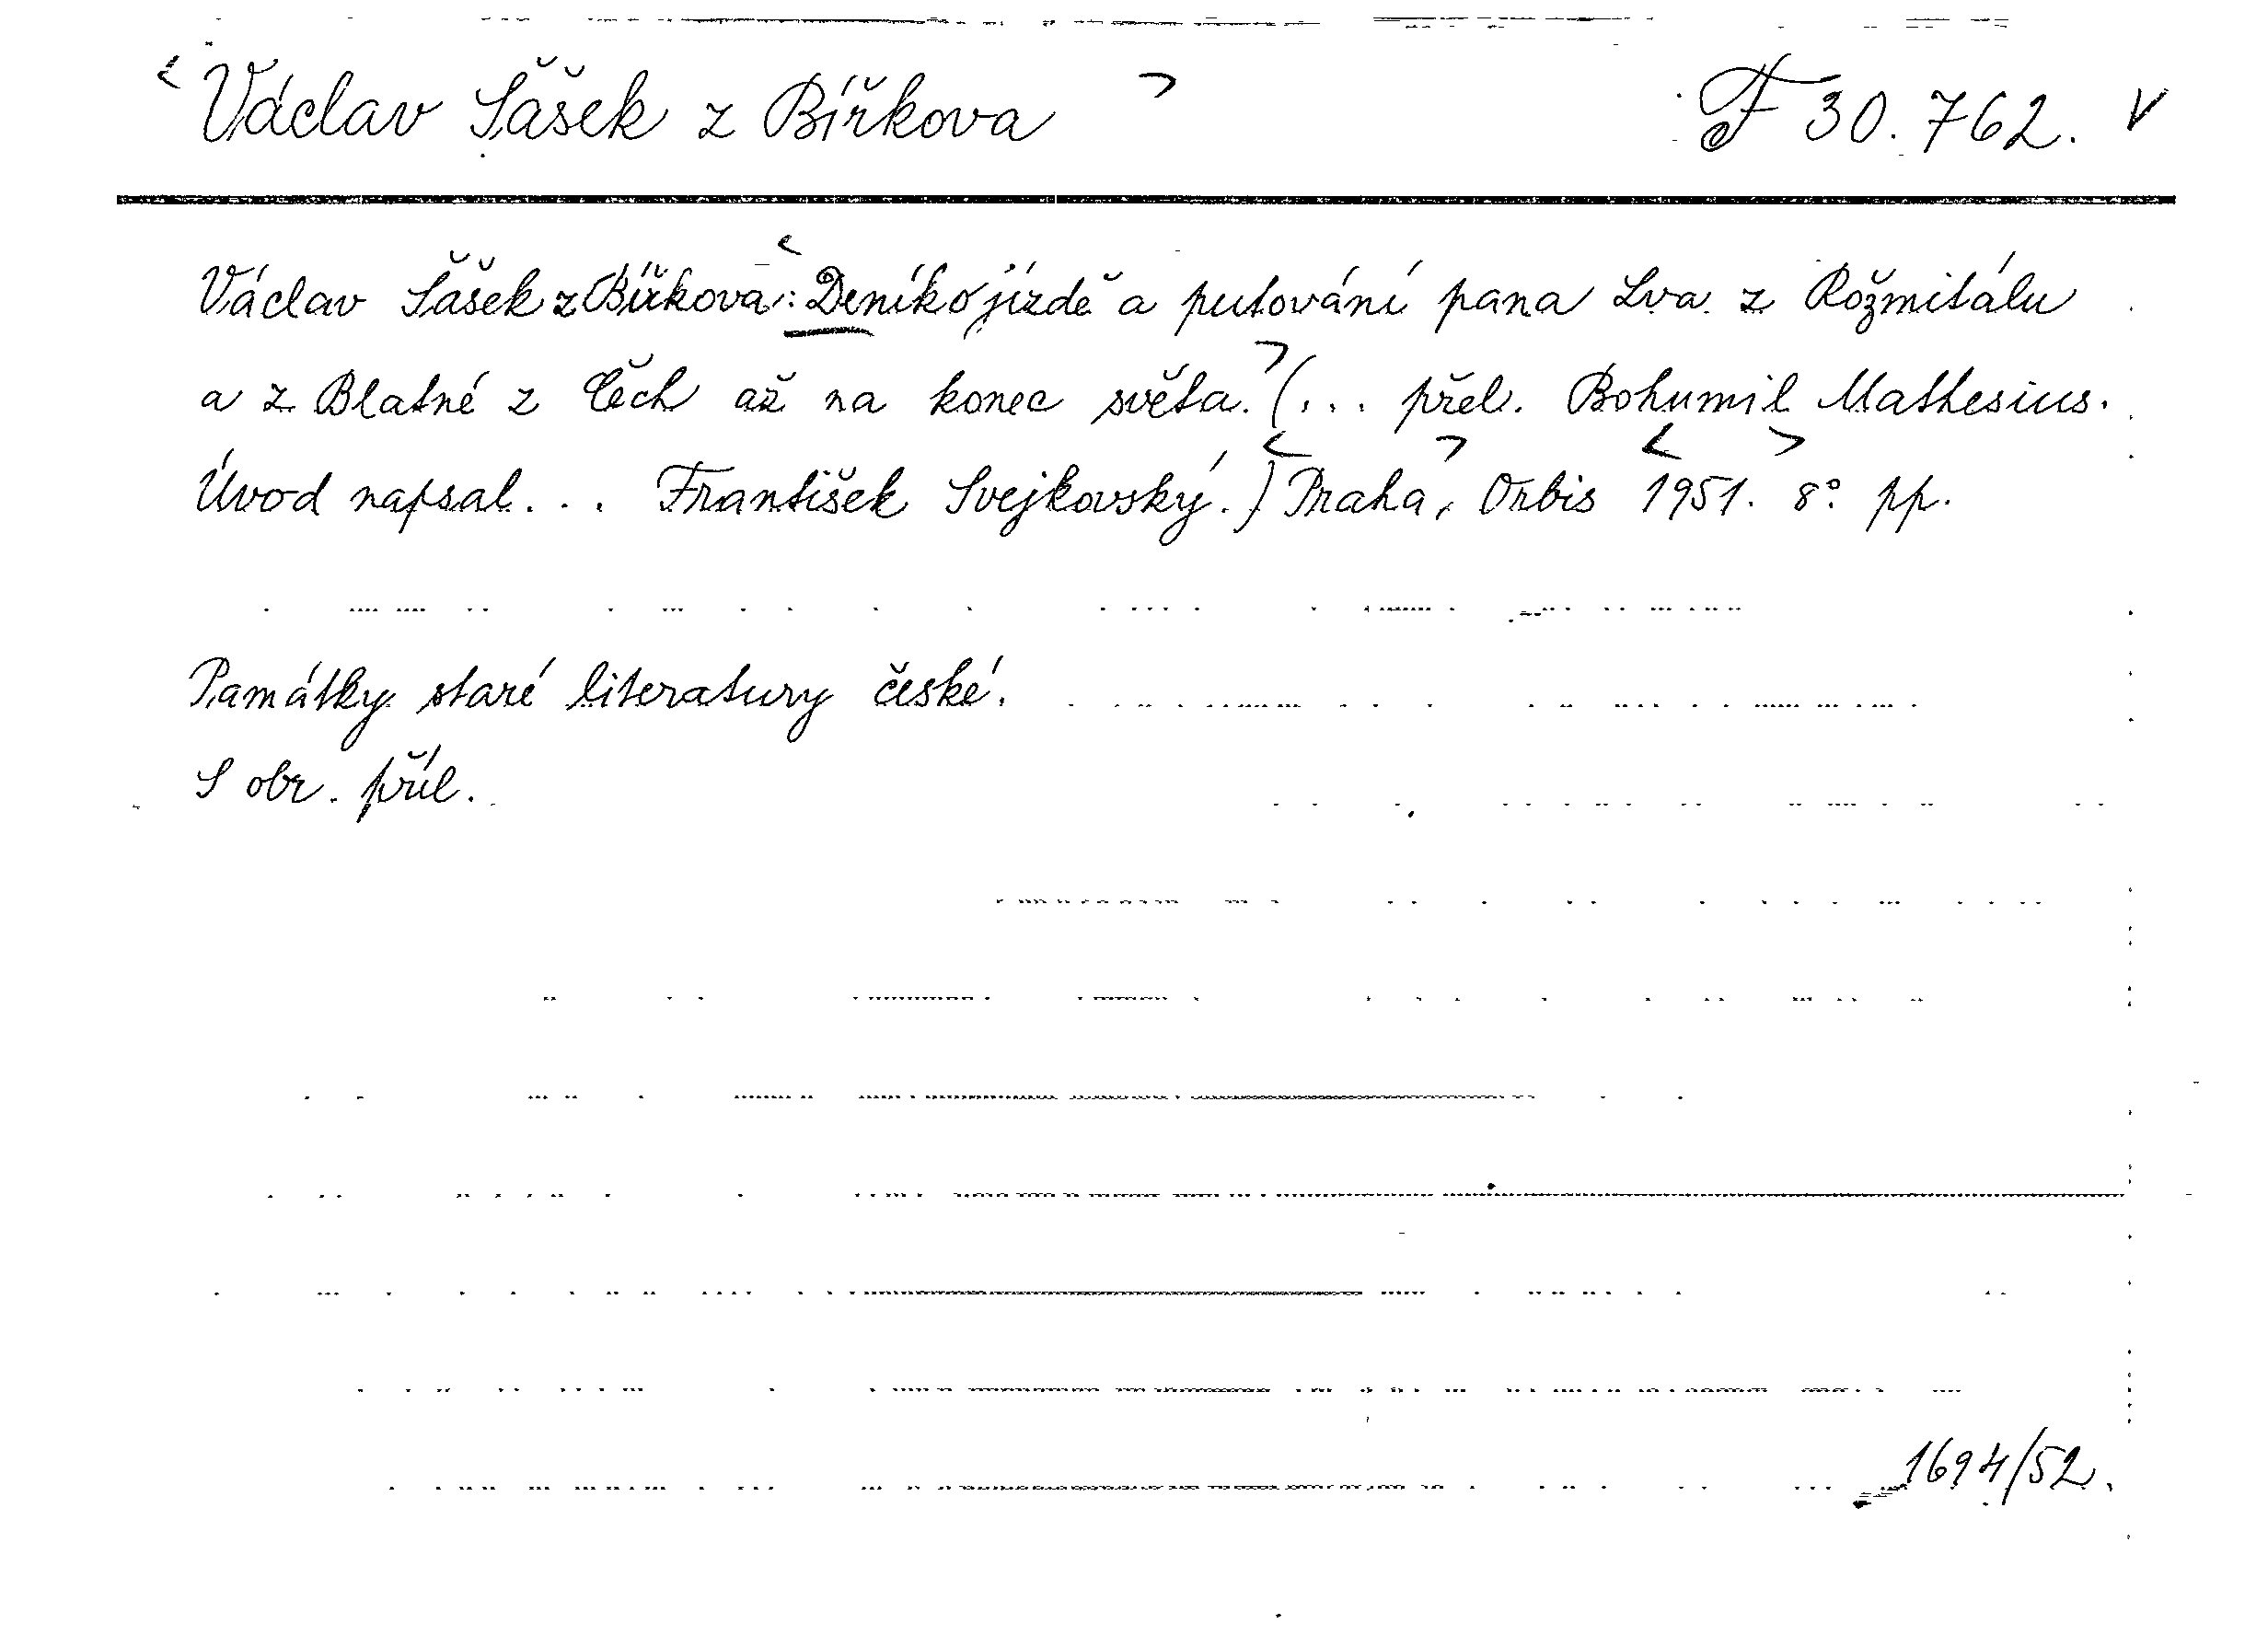 <Václav Šašek z Bířkova> F 30.762. v
Václav Šašek z Bířkova: <Deník o jízdě a putování pana Lva z Rožmitálu
a z Blatné z Čech až na konec světa.> (... přel. Bohumil Mathesius.
Úvod napsal... František Svejkovský.) <Praha,> Orbis <1951.> 8° pp.
Památky staré literatury české.
S obr. příl.
1694/52.